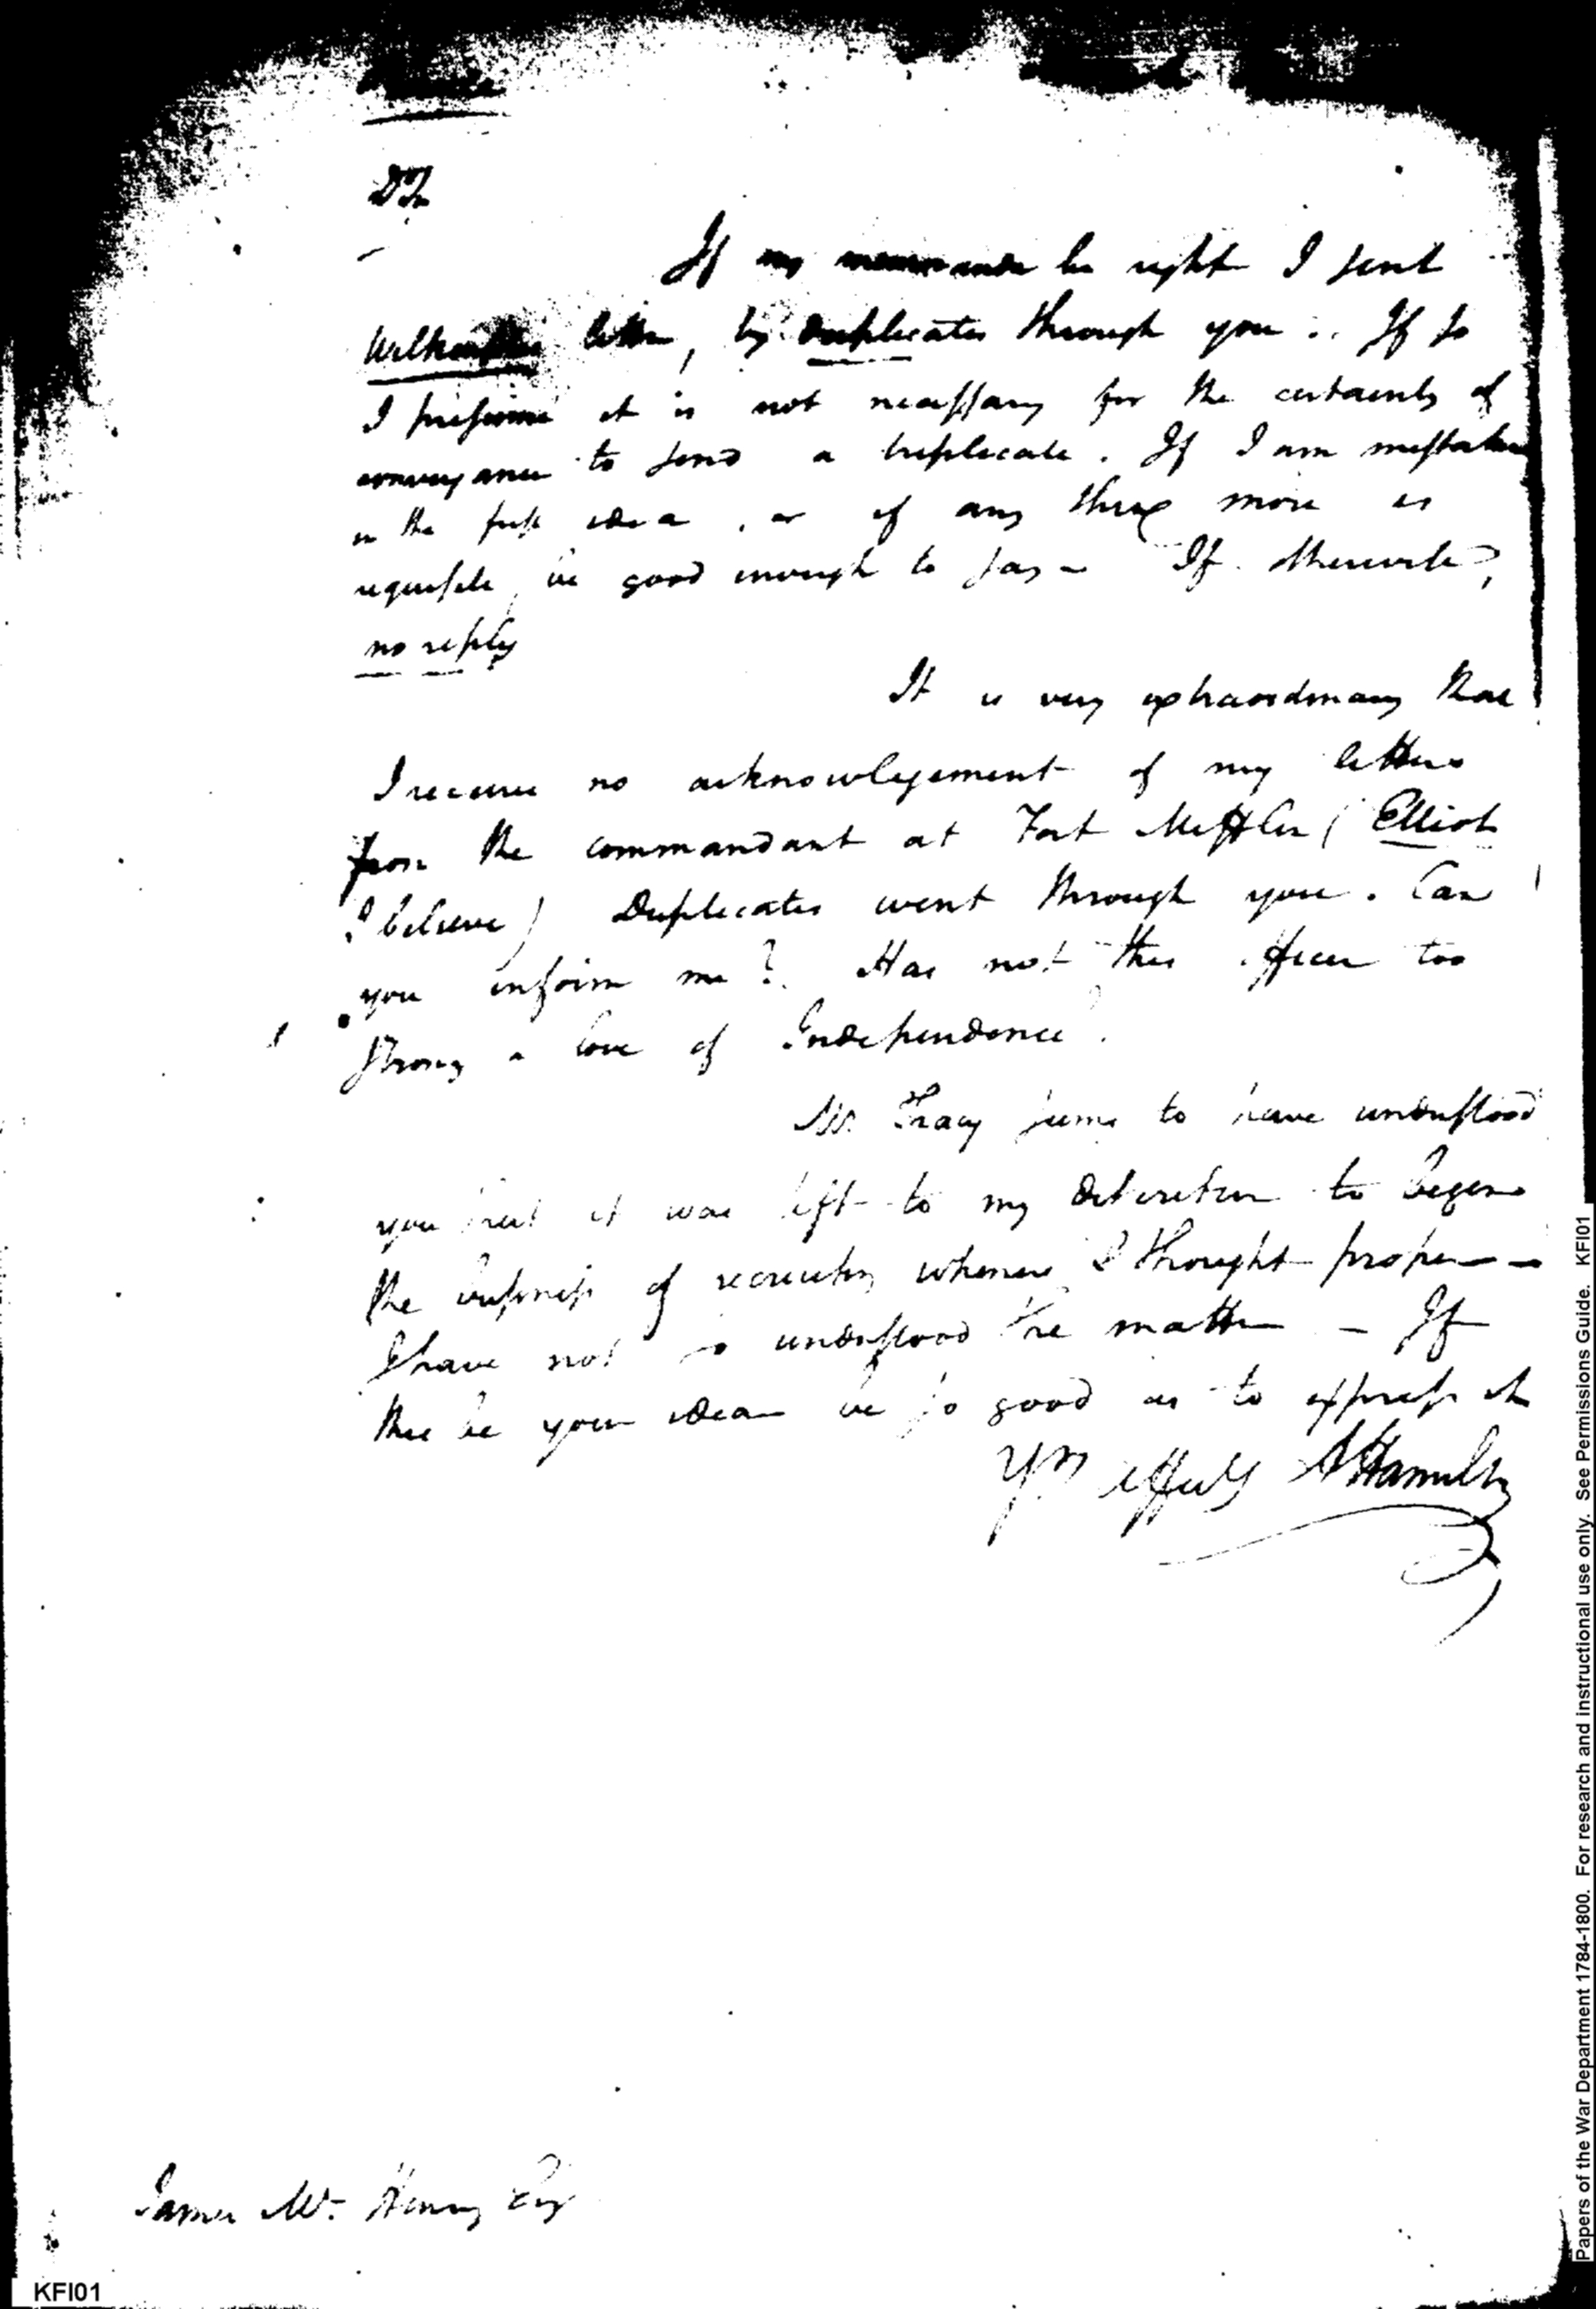 Dr Sir
If my memoranda be right I sent
Wilkinson's letter, by duplicates through you. If so
I presume it is not necessary for the certainty of
conveyance to send a triplicate. If I am mistaken
in the first idea, or if any thing more is
requisite, be good enough to say – If otherwise,
no reply
It is very extraordinary that
I receive no acknowlegement of my letters
from the commandant at Fort Mifflin (Elliot
I believe) Duplicates went through you. Can
you inform me? Has not this officer too
strong a love of Independence?
Mr. Tracy seems to have understood
you that it was left to my discretion to begin
the business of recruiting whenever I thought proper –
I have not so understood the matter – If
this be your idea be so good as to express it
Yrs. affecly A Hamilton
James Mc. Henry Esq
KFI01
Papers of the War Department 1784-1800. For research and instructional use only. See Permissions Guide. KFI01